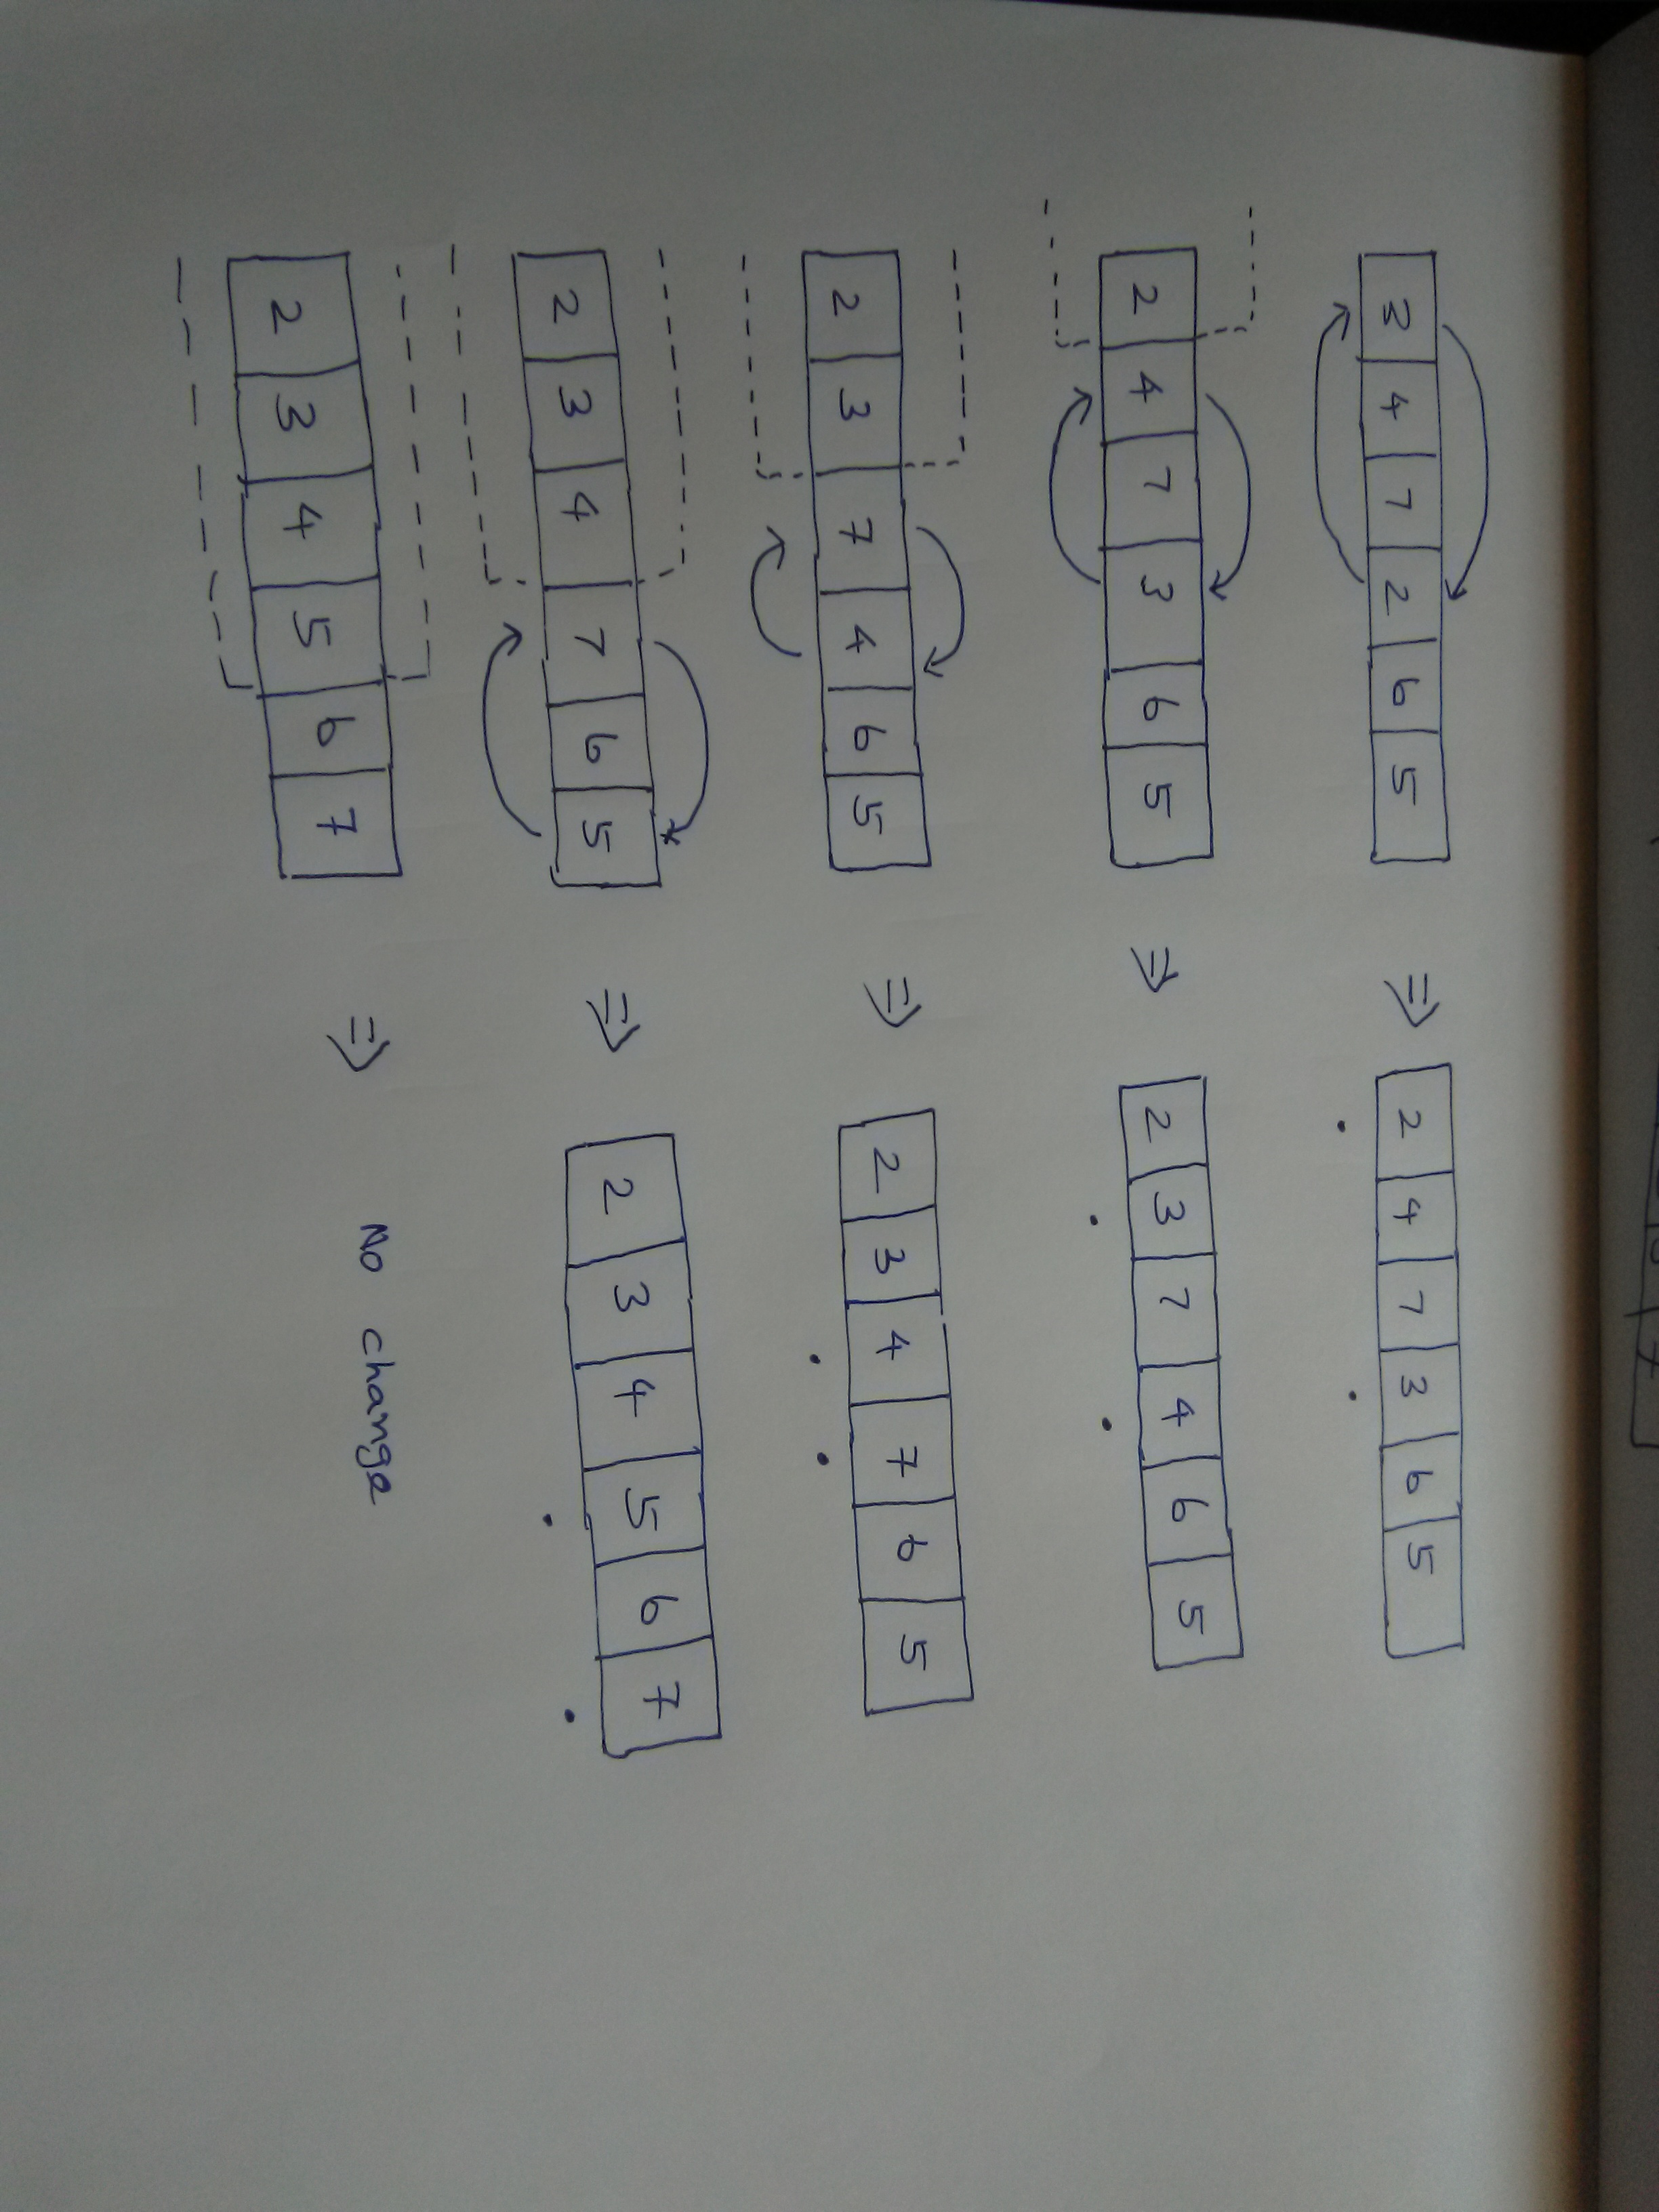 3 4 7 2 6 5 ⇒ 2 4 7 3 6 5
2 4 7 3 6 5 ⇒ 2 3 7 4 6 5
2 3 7 4 6 5 ⇒ 2 3 4 7 6 5
2 3 4 7 6 5 ⇒ 2 3 4 5 6 7
2 3 4 5 6 7 ⇒ No change